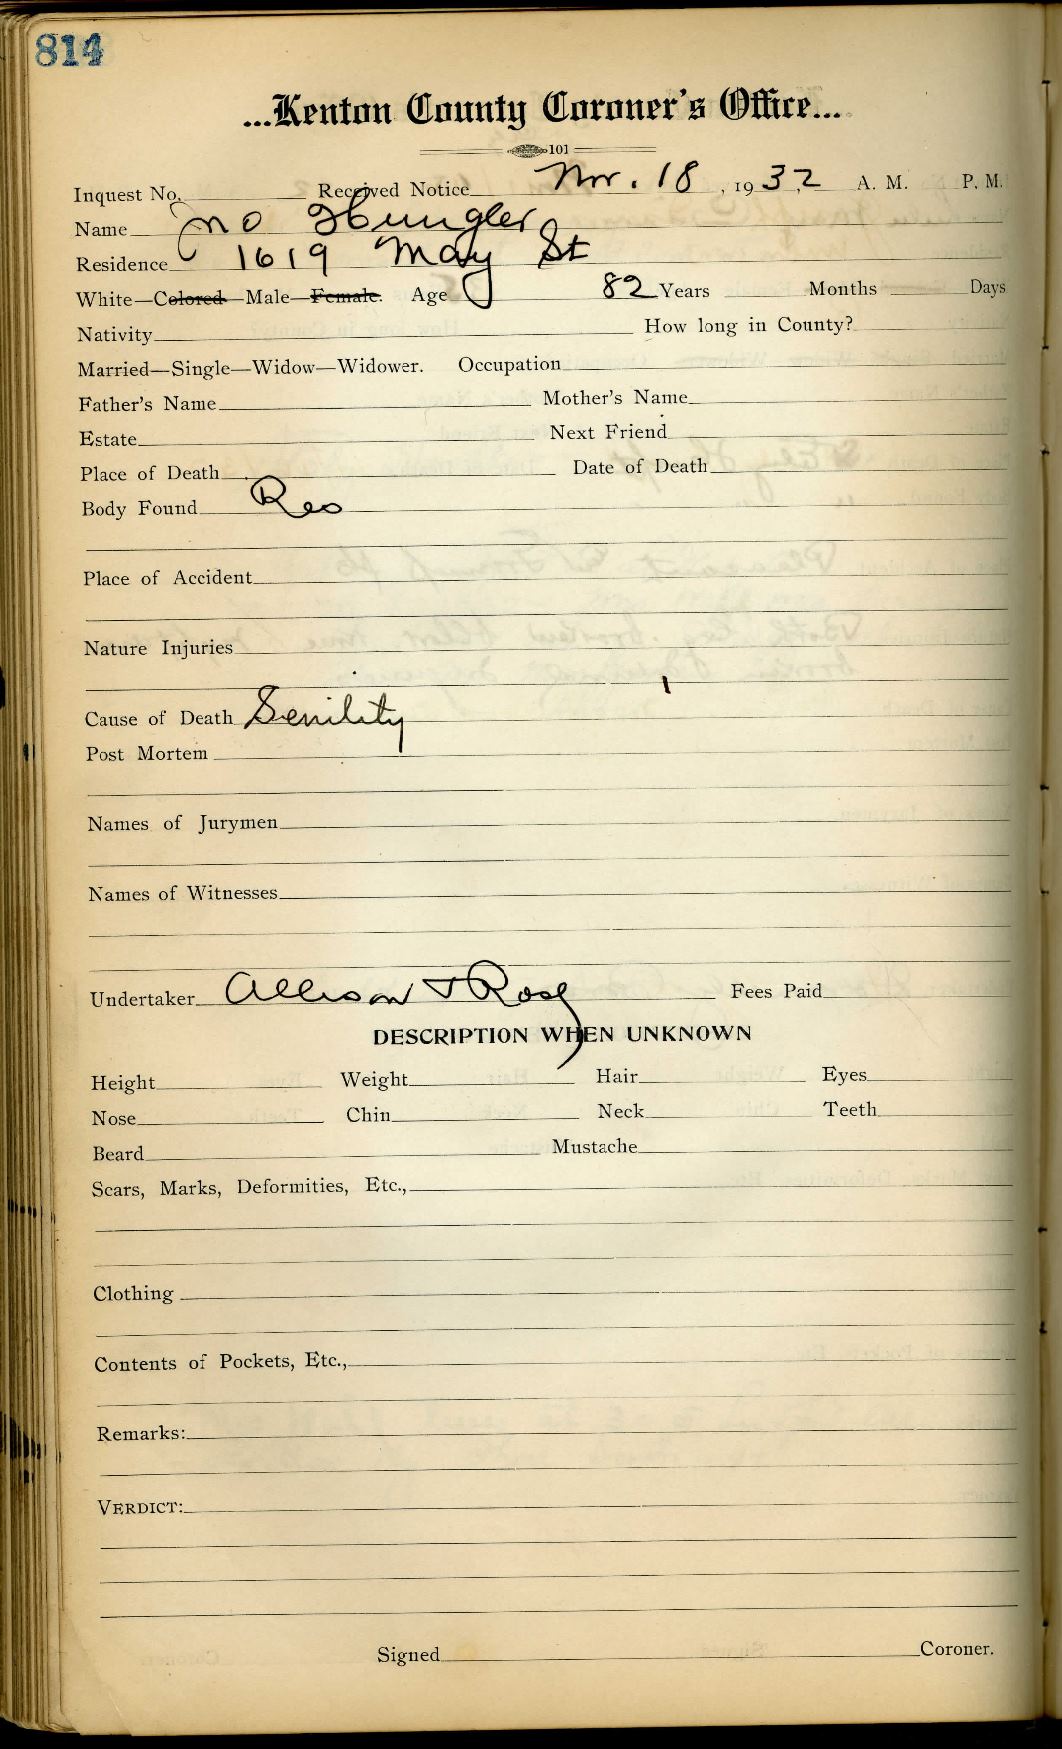 814
...Kenton County Coroner's Office...
101
Inquest No. Received Notice Nov. 18, 1932 A. M. P. M.
Name Hungler
Residence 1619 May St
White—Colored—Male—Female. Age 82 Years Months Days
Nativity How long in County?
Married—Single—Widow—Widower. Occupation
Father's Name Mother's Name
Estate Next Friend
Place of Death Date of Death
Body Found Res
Place of Accident
Nature Injuries
Cause of Death Senility
Post Mortem
Names of Jurymen
Names of Witnesses
Undertaker Allison & Rose Fees Paid
DESCRIPTION WHEN UNKNOWN
Height Weight Hair Eyes
Nose Chin Neck Teeth
Beard Mustache
Scars, Marks, Deformities, Etc.,
Clothing
Contents of Pockets, Etc.,
Remarks:
VERDICT:
Signed Coroner.